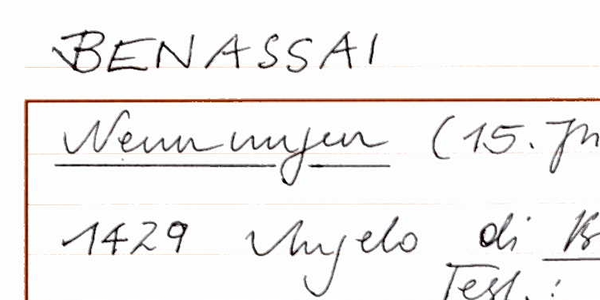 BENASSAI
Nennungen (15. Jh
1429 Angelo di B
Test.: